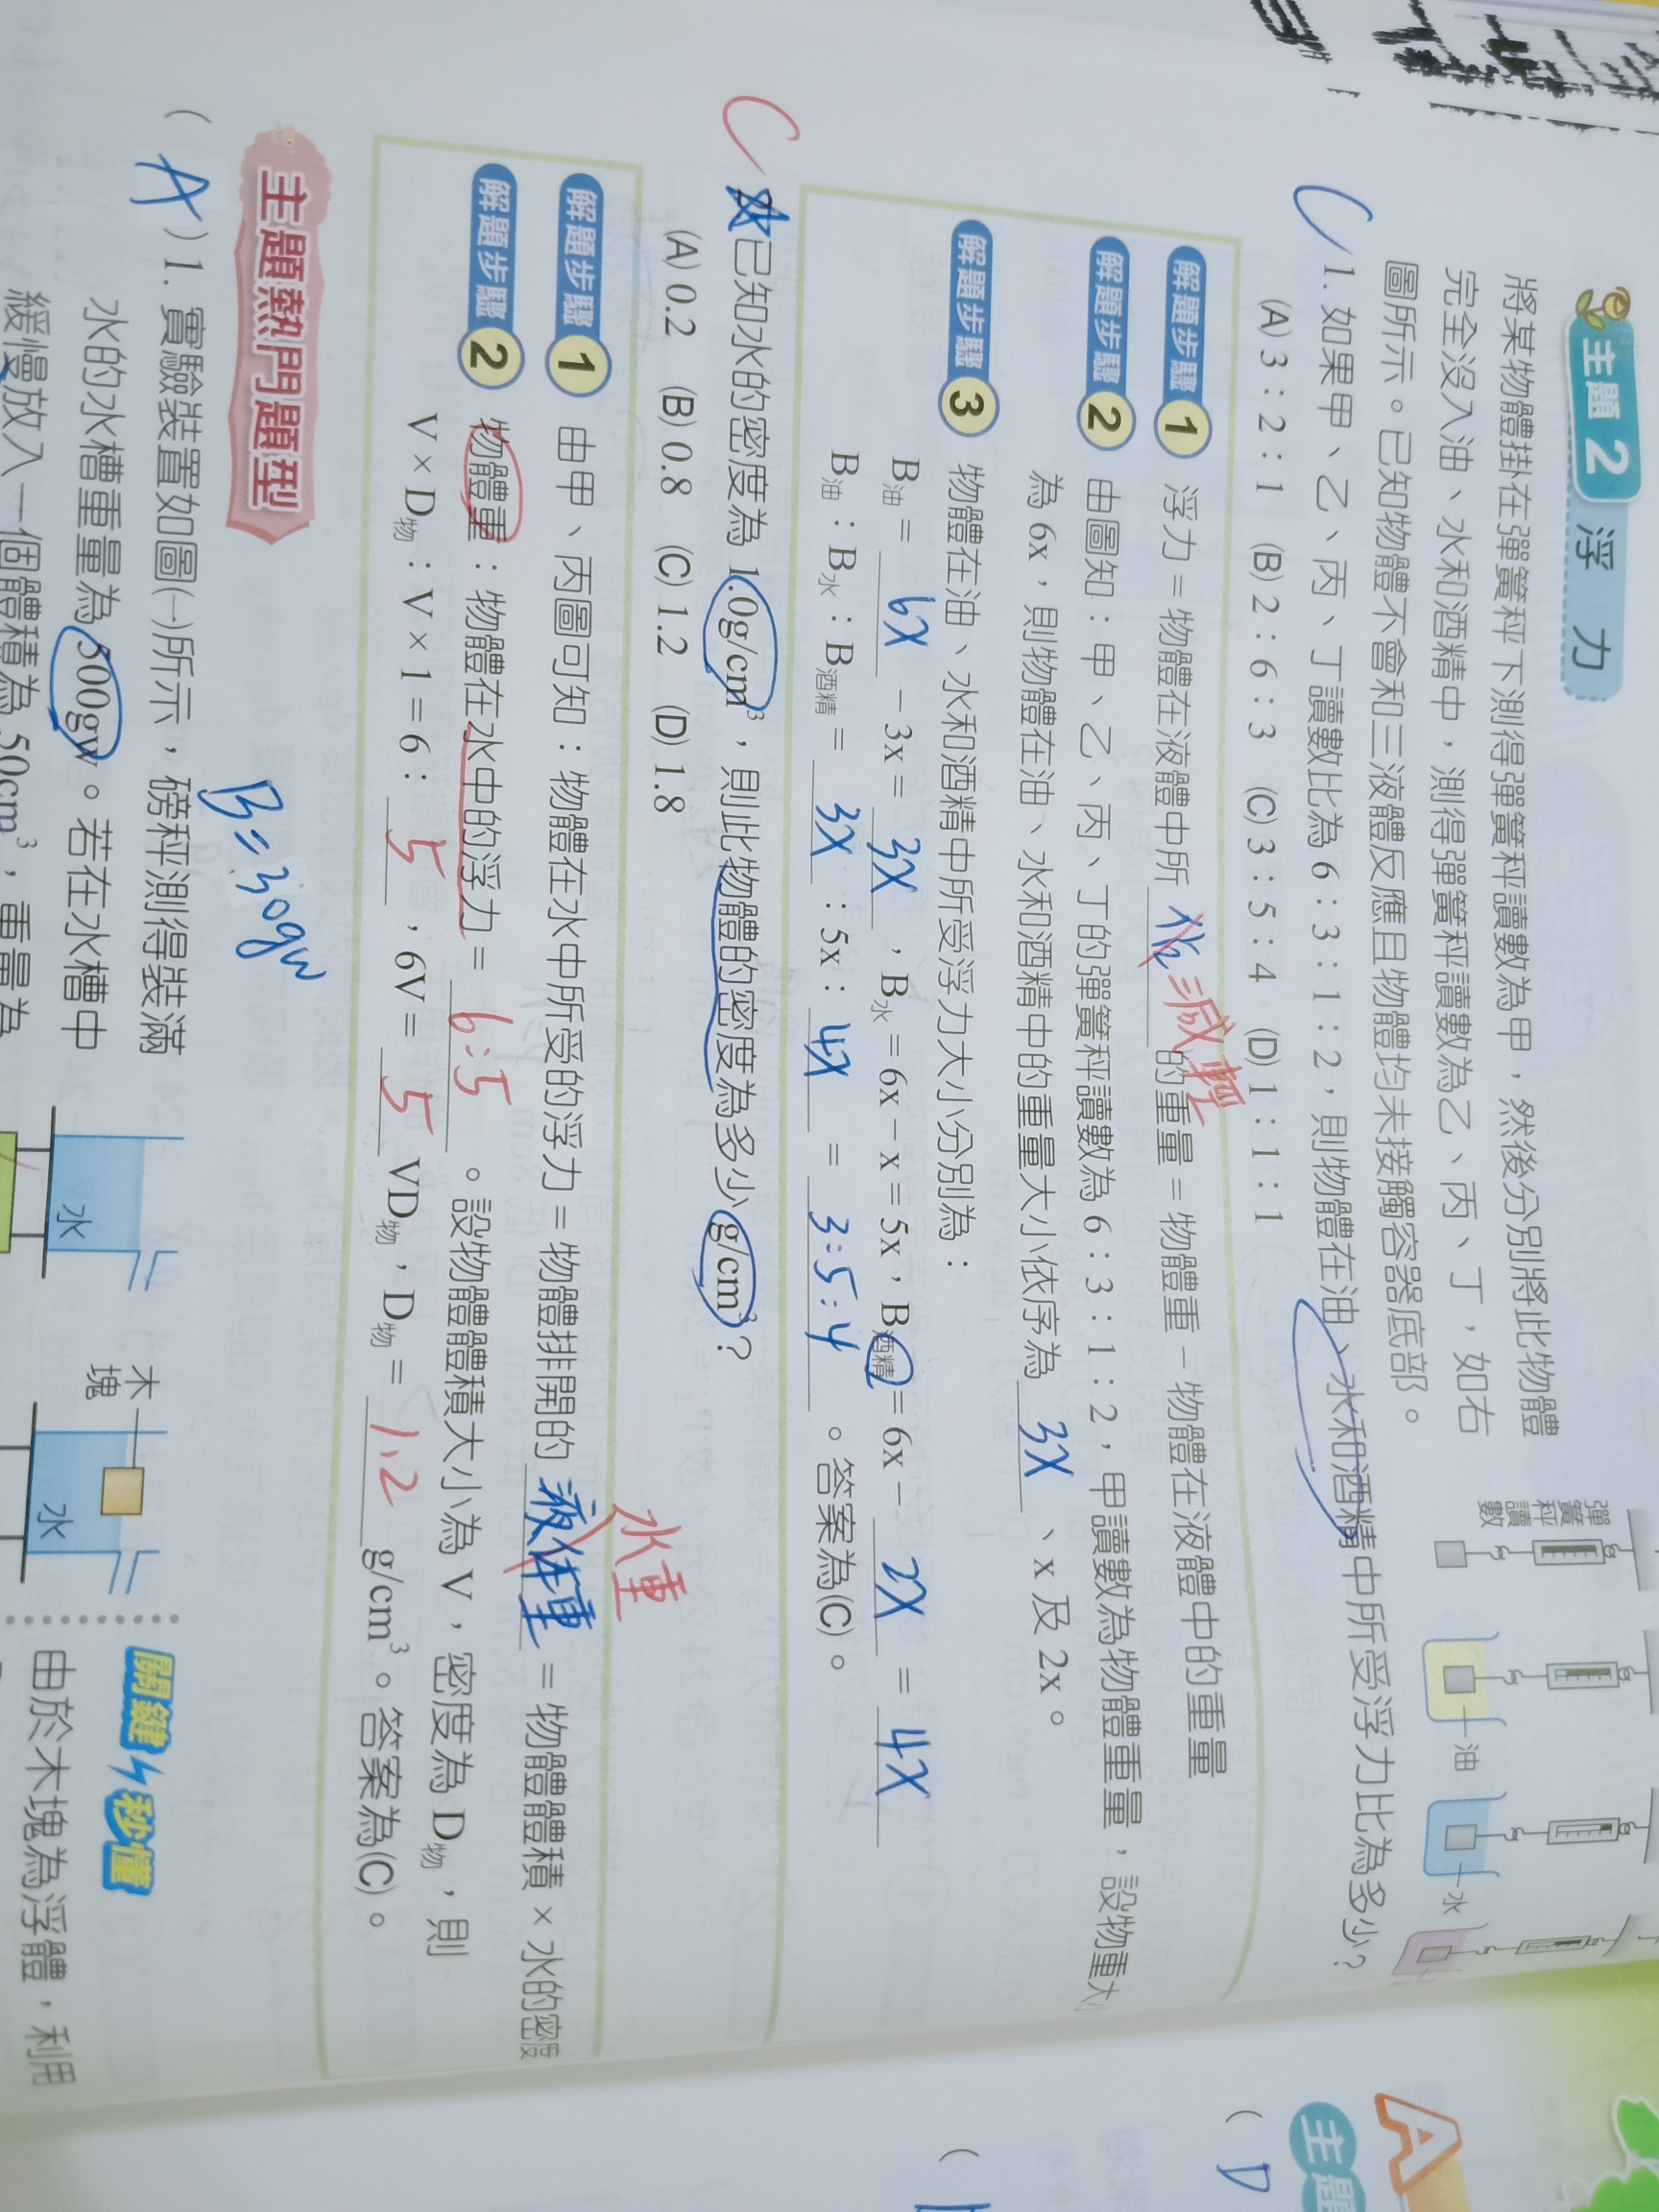 主題2 浮力
將某物體掛在彈簧秤下測得彈簧秤讀數為甲，然後分別將此物體
完全沒入油、水和酒精中，測得彈簧秤讀數為乙、丙、丁，如右
圖所示。已知物體不會和三液體反應且物體均未接觸容器底部。
彈簧秤讀數
油
水
C 1. 如果甲、乙、丙、丁讀數比為 6：3：1：2，則物體在油、水和酒精中所受浮力比為多少？
(A) 3：2：1 (B) 2：6：3 (C) 3：5：4 (D) 1：1：1
解題步驟 1 浮力＝物體在液體中所 減輕 的重量＝物體重－物體在液體中的重量
解題步驟 2 由圖知：甲、乙、丙、丁的彈簧秤讀數為 6：3：1：2，甲讀數為物體重量，設物重大
為 6x，則物體在油、水和酒精中的重量大小依序為 3X 、x 及 2x。
解題步驟 3 物體在油、水和酒精中所受浮力大小分別為：
B油＝ 6X －3x＝ 3X ，B水＝6x－x＝5x，B酒精＝6x－ 2X ＝ 4X
B油：B水：B酒精＝ 3X ：5x： 4X ＝ 3:5:4 。答案為(C)。
C 已知水的密度為 1.0g/cm³，則此物體的密度為多少 g/cm³？
(A) 0.2 (B) 0.8 (C) 1.2 (D) 1.8
水重
解題步驟 1 由甲、丙圖可知：物體在水中所受的浮力＝物體排開的 液体重 ＝物體體積×水的密度
解題步驟 2 物體重：物體在水中的浮力＝ 6:5 。設物體體積大小為 V，密度為 D物，則
V×D物：V×1＝6： 5 ，6V＝ 5 VD物，D物＝ 1.2 g/cm³。答案為(C)。
主題熱門題型
B=30gw
( A ) 1. 實驗裝置如圖(一)所示，磅秤測得裝滿
水的水槽重量為 500gw。若在水槽中
緩慢放入一個體積為 50cm³，重量為
水
木塊
水
關鍵秒懂
由於木塊為浮體，利用
A
主題
( D
(